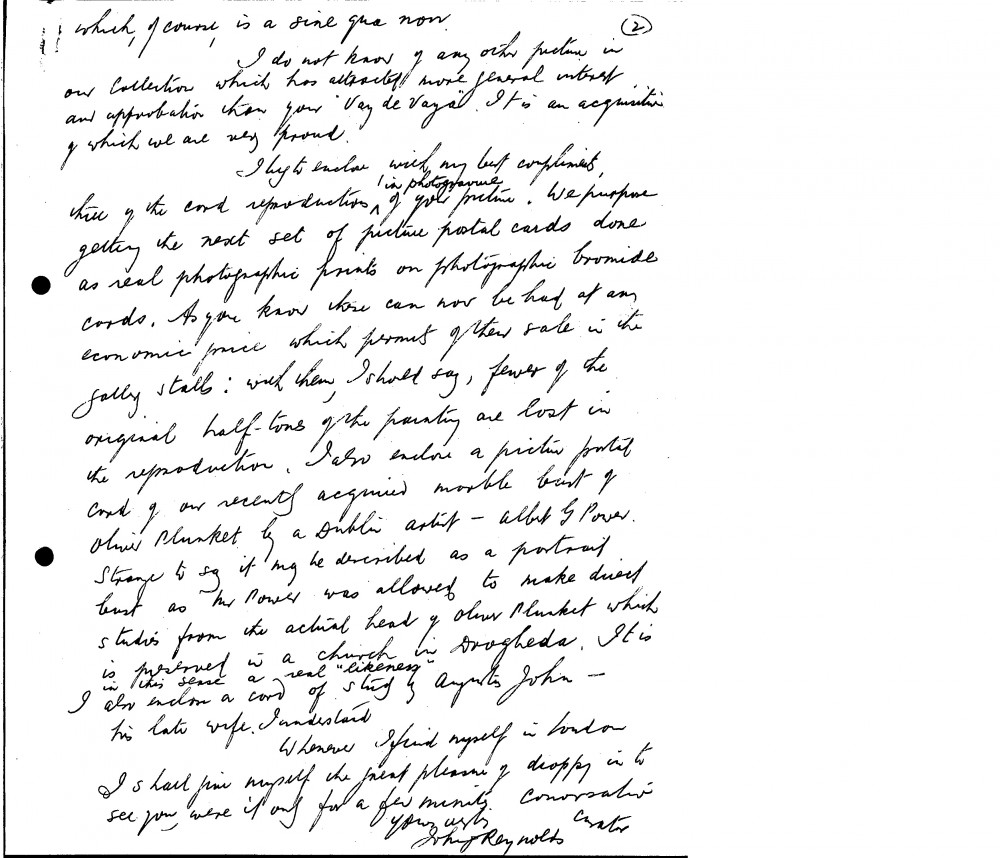 which, of course, is a sine qua non.
(2)
I do not know of any other picture in
our Collection which has attracted more general interest
and approbation than your "Vay de Vaya". It is an acquisition
of which we are very proud.
I beg to enclose with my best compliments,
three of the card reproductions in photogravure of your picture. We purpose
getting the next set of picture postal cards done
as real photographic prints on photographic bromide
cards. As you know these can now be had at an
economic price which permits of their sale in the
galley stalls: with them, I should say, fewer of the
original half-tones of the painting are lost in
the reproduction. I also enclose a picture postal
card of our recently acquired marble bust of
Oliver Plunket by a Dublin artist – Albert G Power.
Strange to say it may be described as a portrait
bust as Mr Power was allowed to make direct
studies from the actual head of Oliver Plunket which
is preserved in a church in Drogheda. It is
in this sense a real "likeness"
I also enclose a card of study by Augustus John –
his late wife, I understand
Whenever I find myself in London
I shall give myself the great pleasure of dropping in to
see you, were it only for a few minutes' conversation
yours
John J Reynolds curator